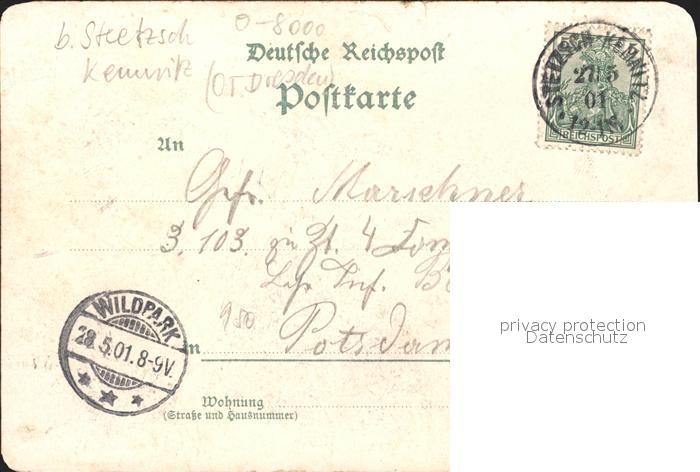 b. Stetzsch
Kemnitz
0-8000
(OT Dresden)
Deutsche Reichspost
Postkarte
STETZSCH-KEMNITZ
27.5
01
REICHSPOST
An
Gefr. Marschner
3. 103. zu Zt. 4
Lehr Inf.
950
in Potsdam
WILDPARK
28.5.01.8-9V.
Wohnung
(Straße und Hausnummer)
privacy protection
Datenschutz